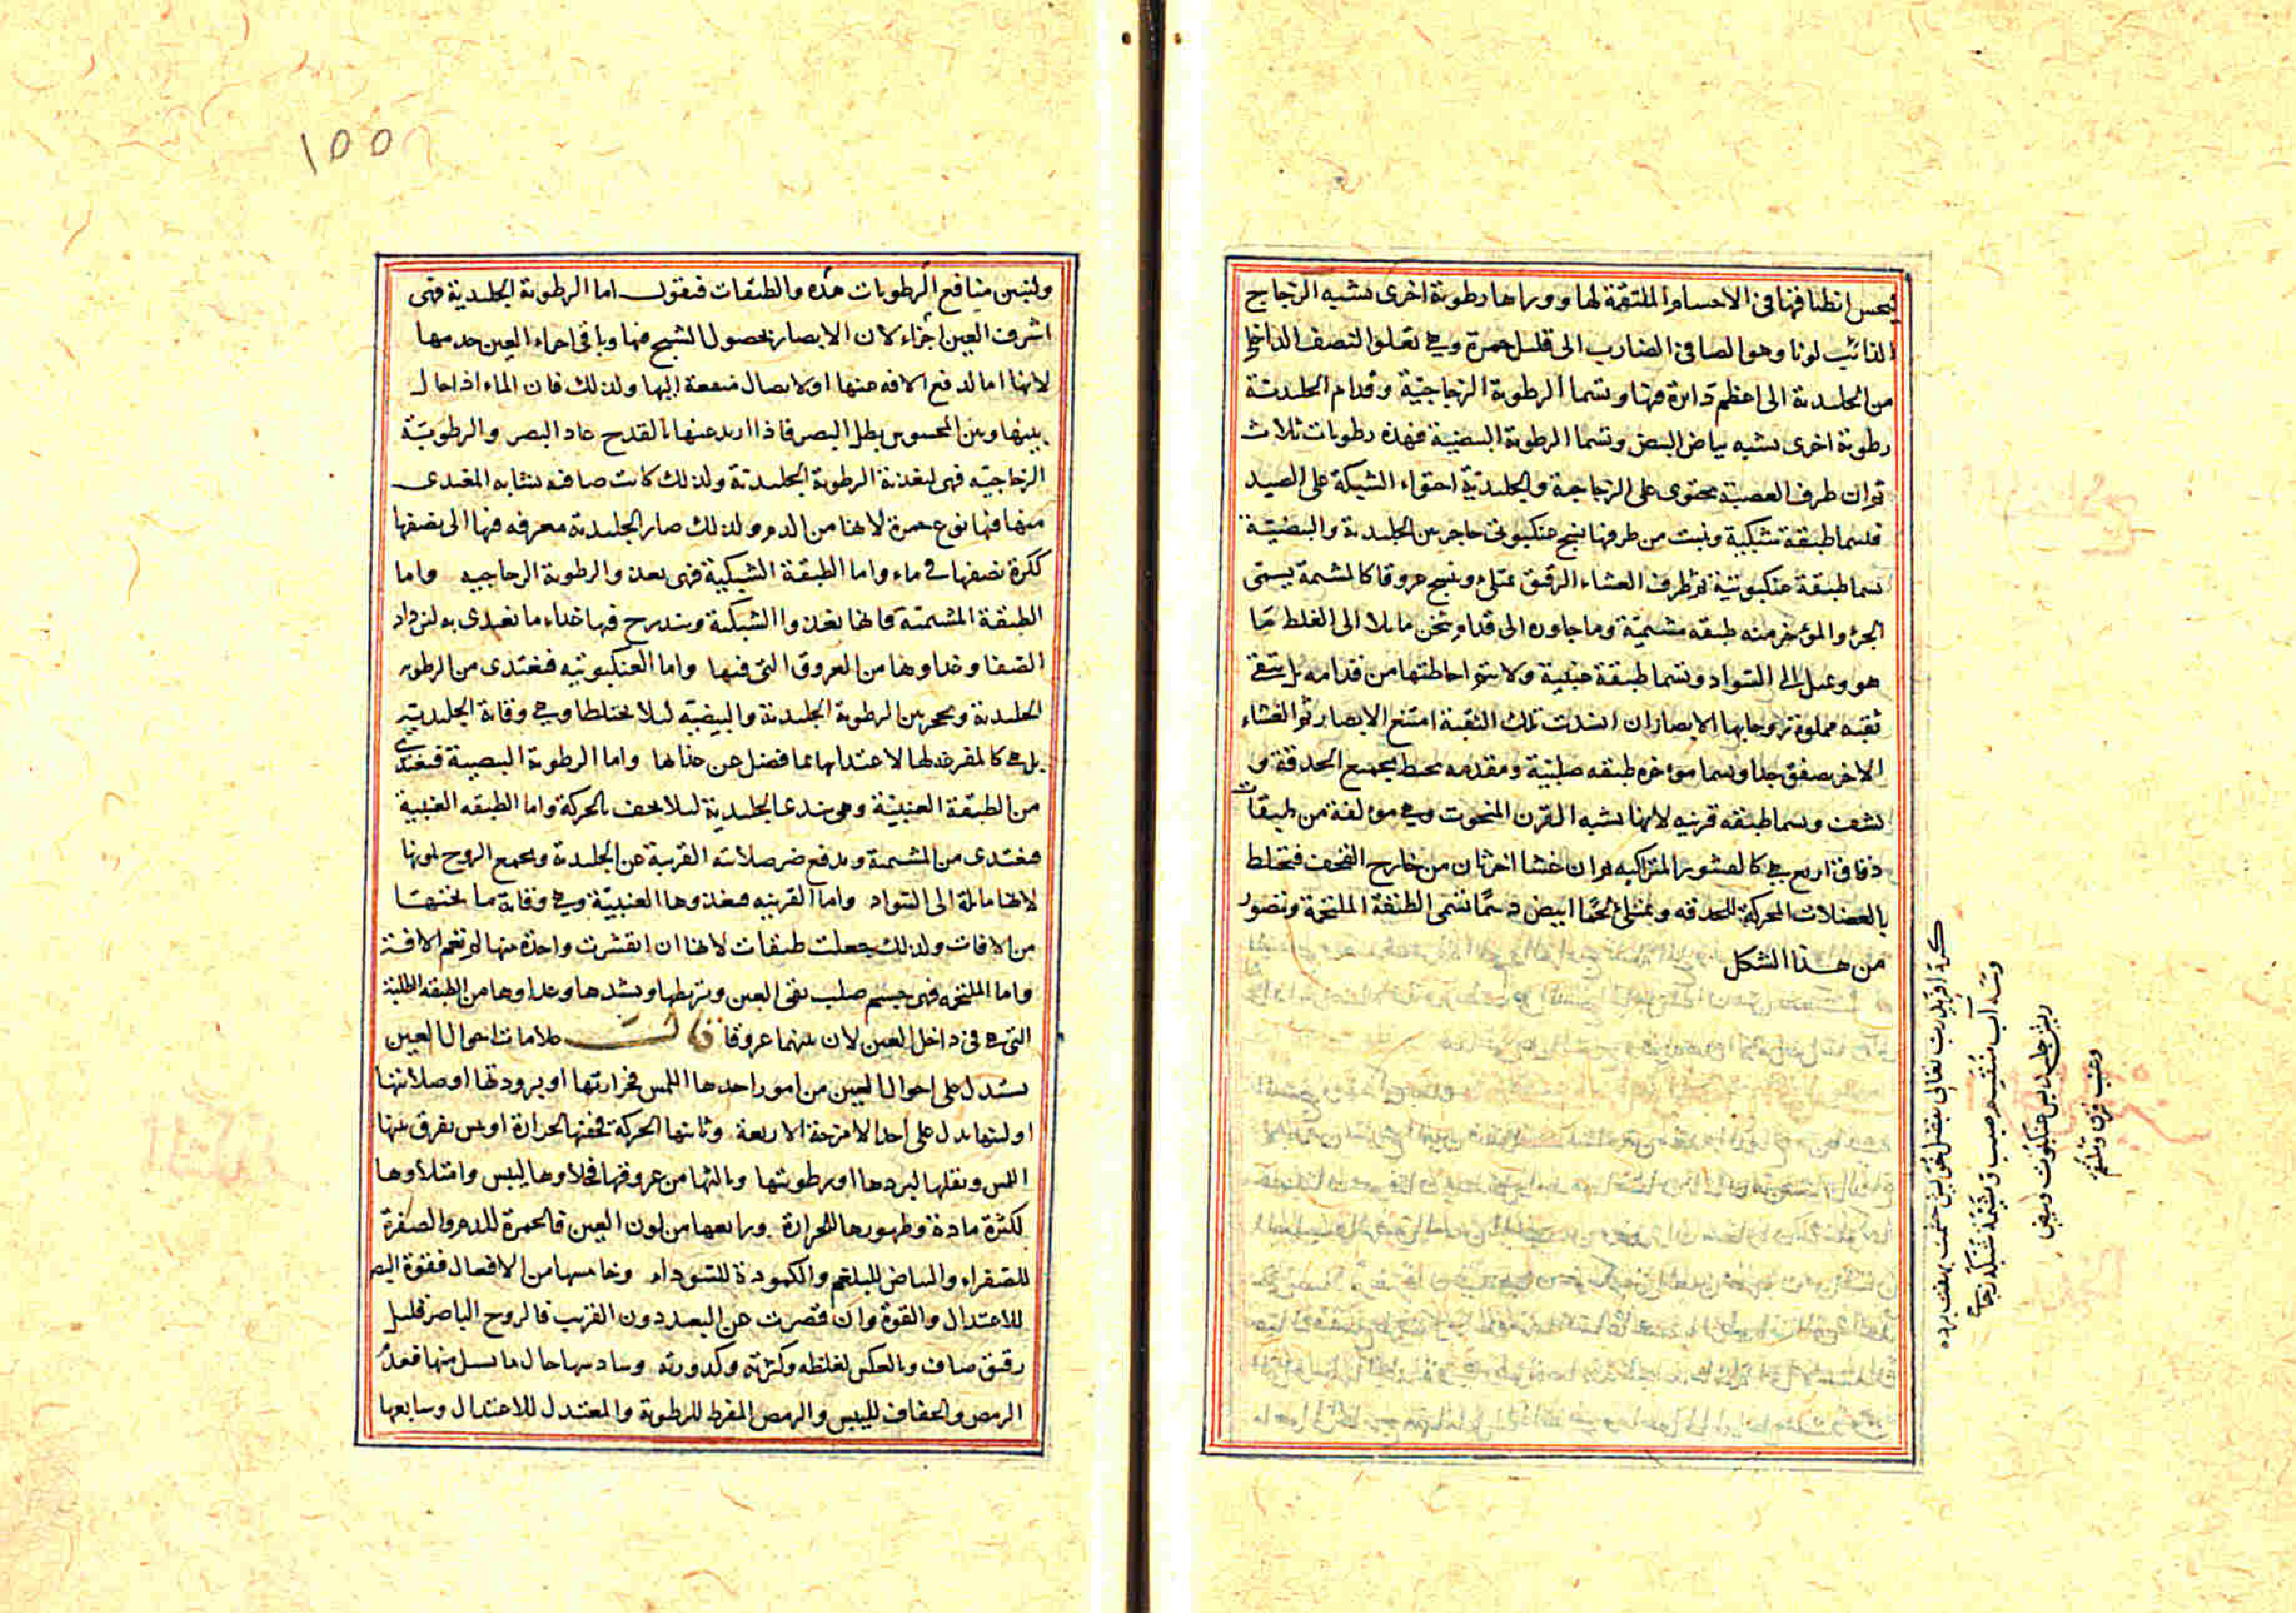 فيحسن انطباقها فى الاجسام الملتقمة لها ووراها رطوبة اخرى تشبه الزجاج
الذائب لونا وهو الصافى الضارب الى قليل حمرة وهى تعلو النصف الداخل
من الجليدية الى اعظم دائرة فيها وتسما الرطوبة الزجاجية وقدام الجليدية
رطوبة اخرى تشبه بياض البيض وتسما الرطوبة البيضية فهذه رطوبات ثلاث
ثم ان طرف العصبة محتوى على الزجاجية والجليدية احتواء الشبكة على الصيد
فلسما طبقة شبكية ونبت من طرفها نسج عنكبوتى حاجز بين الجليدية والبيضية
تسما طبقة عنكبوتية ثم طرف الغشاء الرقيق يمتلئ وينسج عروقا كالمشيمة يسمى
الجزء والمؤخر منه طبقه مشيمية وما جاوزه الى قدام وثخن مايلا الى الغلظ ما
هو وميل الى السواد وتسما طبقة عنبية ولا يتم احاطتها من قدامه بل تبقى
ثقبه مملوة روحا بها الابصار ان انسدت تلك الثقبة امتنع الابصار ثم الغشاء
الاخر يصفق جدا وتسما مؤخره طبقه صلبية ومقدمه محيط بجميع الحدقة و
تشف وتسما طبقه قرنيه لانها تشبه القرن المنحوت وهى مؤلفة من طبقات
دقاق اربع هى كالقشور المتراكبه ثم ان غشا اخر ثان من خارج القحف فتخلط
بالعضلات المحركة للحدقه ويمتلئ لحما ابيض دسما تسمى الطبقة الملتحمة وتصور
من هذا الشكل
كرد آفريد رب تعالى بفضل خويش چشمت بهفت پرده
وسه آب منقسم صلب و مشيمه شبكه زجاج
پس جليد پس عنكبوت وبيض
وعنب قرن و ملتحم
١٥٥
ولنبين منافع الرطوبات هذه والطبقات فنقول اما الرطوبة الجليدية فهى
اشرف العين اجزاء لان الابصار بحصول الشبح فيها وباقى اجزاء العين خدمها
لانها اما لدفع الافه عنها او لايصال منفعة إليها ولذلك فان الماء اذا حال
بينها وبين المحسوس بطل البصر فاذا ازيد عنها بالقدح عاد البصر والرطوبة
الزجاجيه فهى لتغذية الرطوبة الجليدية ولذلك كانت صافيه لتشابه المغتدى
منها فيها نوع حمرة لانها من الدم ولذلك صار الجليدية مغرقه فيها الى نصفها
ككرة نصفها فى ماء واما الطبقة الشبكية فهى تغذو الرطوبة الزجاجيه واما
الطبقة المشيمية فانها تغذوا الشبكية ويتدرج فيها غذاء ما تغتذى به ليزداد
الصفا وغذاوها من العروق التى فيها واما العنكبوتيه فتغتدى من الرطوبه
الجليدية وتحجز بين الرطوبة الجليدية والبيضيه ليلا يختلطا وهى وقاية الجليديه
بل هى كالمفرغه لها لاغتدايها بما فضل عن غذائها واما الرطوبة البيضية فتغتدى
من الطبقة العنبية وهى تندى الجليدية ليلا تجف بالحركة واما الطبقه العنبية
فتغتدى من المشيمة وتدفع ضر صلابته القرنية عن الجليدية وتجمع الروح بلونها
لانها مايلة الى السواد واما القرنيه فغذوها العنبيّة وهى وقاية ما تحتها
من الافات ولذلك جعلت طبقات لانها ان انقشرت واحدة منها لم تعم الافة
واما الملتحمه فهى جسم صلب يقى العين ويربطها ويشدها وغذاوها من الطبقه الصلبة
التى هى فى داخل العين لان بينهما عروقا علامات احوال العين
يستدل على احوال العين من امور احدها اللمس فحرارتها او برودتها او صلابتها
او لينها يدل على احد الامزجة الاربعة وثانيها الحركة فخفتها لحرارة او يبس يفرق بينها
اللمس وثقلها لبردها او رطوبتها وثالثها من عروقها فخلاوها ليبس وامتلاوها
لكثرة مادة وظهورها للحرارة ورابعها من لون العين فالحمرة للدم والصفرة
للصفراء والبياض للبلغم والكمودة للسوداء وخامسها من الافعال فقوة البصر
للاعتدال والقوة وان قصرت عن البعيد دون القريب فالروح الباصر قليل
رقيق صاف وبالعكس لغلظه وكثرته وكدورته وسادسها حال ما يسيل منها فعدم
الرمص والجفاف لليبس والرمص المفرط للرطوبة والمعتدل للاعتدال وسابعها